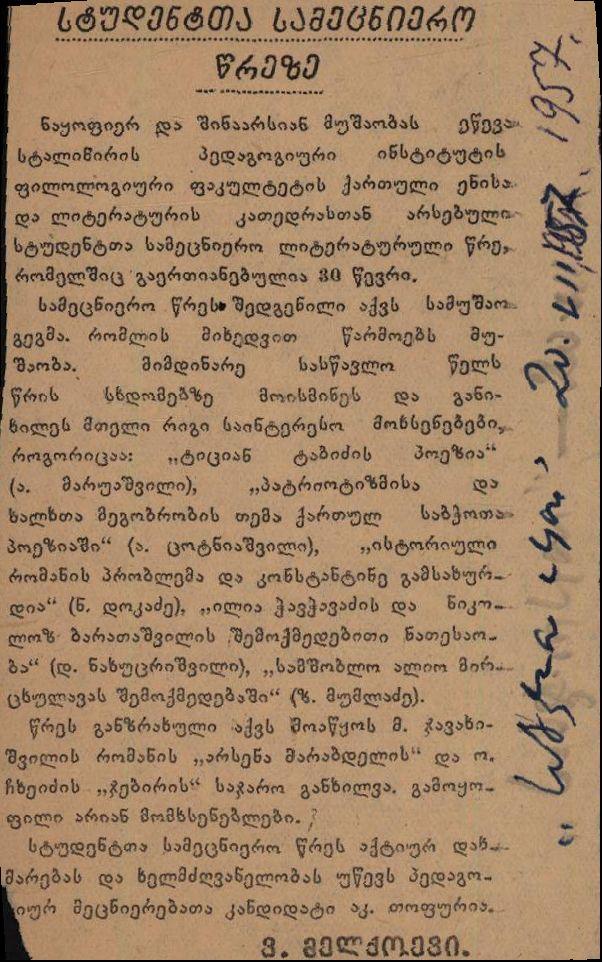 სტუდენტთა სამეცნიერო
წრეზე
ნაყოფიერ და შინაარსიან მუშაობას ეწევა
სტალინირის პედაგოგიური ინსტიტუტის
ფილოლოგიური ფაკულტეტის ქართული ენისა
და ლიტერატურის კათედრასთან არსებული
სტუდენტთა სამეცნიერო ლიტერატურული წრე,
რომელშიც გაერთიანებულია 30 წევრი.
სამეცნიერო წრეს შედგენილი აქვს სამუშაო
გეგმა. რომლის მიხედვით წარმოებს მუ-
შაობა. მიმდინარე სასწავლო წელს
წრის სხდომებზე მოისმინეს და განი-
ხილეს მთელი რიგი საინტერესო მოხსენებები,
როგორიცაა: „ტიციან ტაბიძის პოეზია“
(ა. მარუაშვილი), „პატრიოტიზმისა და
ხალხთა მეგობრობის თემა ქართულ საბჭოთა
პოეზიაში“ (ა. ცოტნიაშვილი), „ისტორიული
რომანის პრობლემა და კონსტანტინე გამსახურ-
დია“ (ნ. დოკაძე), „ილია ჭავჭავაძის და ნიკო-
ლოზ ბარათაშვილის შემოქმედებითი ნათესაო-
ბა“ (დ. ნახუცრიშვილი), „სამშობლო ალიო მირ-
ცხულავას შემოქმედებაში“ (ზ. მუმლაძე).
წრეს განზრახული აქვს მოაწყოს მ. ჯავახი-
შვილის რომანის „არსენა მარაბდელის“ და ო.
ჩხეიძის „ჯებირის“ საჯარო განხილვა. გამოყო-
ფილი არიან მომხსენებლები.
სტუდენტთა სამეცნიერო წრეს აქტიურ დახ-
მარებას და ხელმძღვანელობას უწევს პედაგო-
იურ მეცნიერებათა კანდიდატი აკ. თოფურია.
ვ. მელქოევი.
20. 1957.